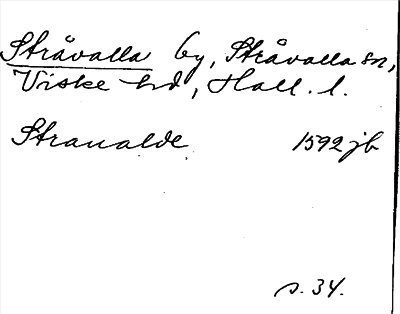 Stråvalla by, Stråvalla sn,
Viske hd, Hall. l.
Stranalde 1592 jb
s. 34.